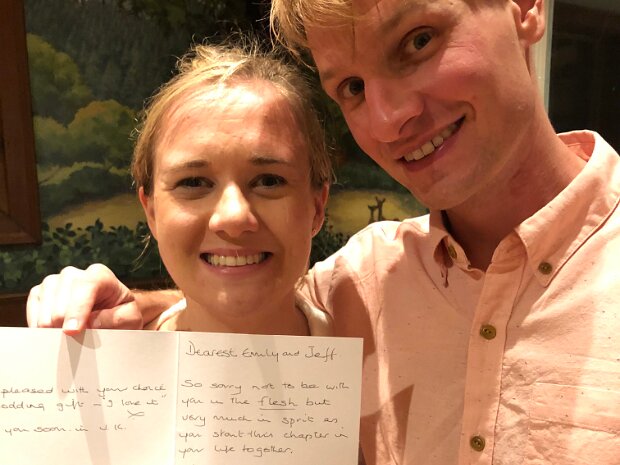 pleased with your choice
edding gift - I love it"
you soon in U.K.
Dearest Emily and Jeff.
So sorry not to be with
you in the flesh but
very much in sprit as
you start this chapter in
your life together.